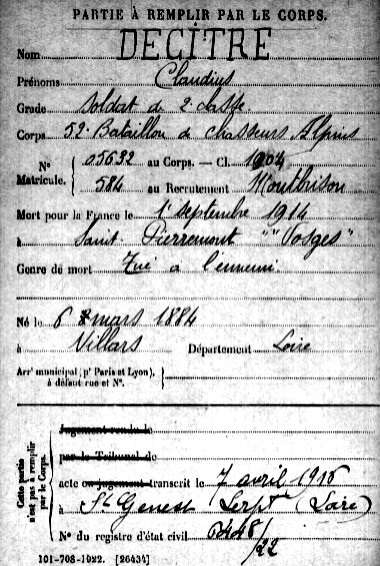 PARTIE À REMPLIR PAR LE CORPS.
Nom DECITRE
Prénoms Claudius
Grade Soldat de 2e classe
Corps 52e Bataillon de Chasseurs Alpins
Nos Matricule. { 05632 au Corps. — Cl. 1904
584 au Recrutement Montbrison
Mort pour la France le 1er septembre 1914
à Saint Pierremont "Vosges"
Genre de mort Tué à l'ennemi
Né le 6 mars 1884
à Villars Département Loire
Arrt municipal (pr Paris et Lyon), à défaut rue et No. }
Cette partie n'est pas à remplir par le Corps.
Jugement rendu le
par le Tribunal de
acte ou jugement transcrit le 7 avril 1916
à St Genest Lerpt (Loire)
No du registre d'état civil
101-708-1922. [26434]